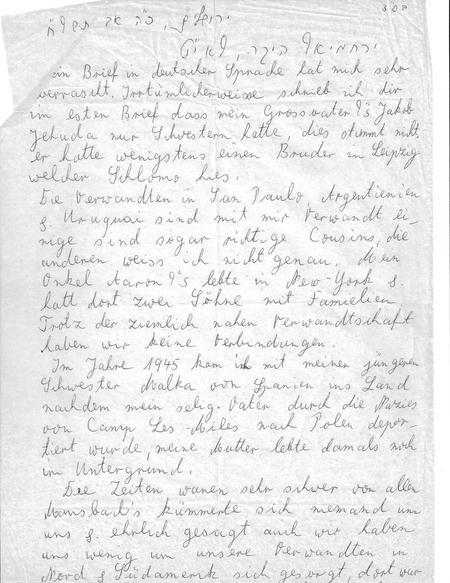 302
ירושלים, כ"ה אב תשל"ח
ירחמיאל היקר,
ein Brief in deutscher Sprache hat mich sehr
verrascht. Irrtümlicherweisse schrieb ich dir
im esten Brief dass mein Grossvater Jakob
Jehuda nur Schwestern hatte, dies stimmt nicht,
er hatte wenigstens einen Bruder in Leipzig
welcher Schlomo hies.
Die Verwandten in San Paulo, Argentienien
& Uruguai sind mit mir Verwandt ei-
nige sind sogar richtige Cousins, die
anderen weiss ich nicht genau. Mein
Onkel Aaron lebte in New-York &
hatt dort zwei Söhne mit Familien
Trotz der ziemlich nahen Verwandtschaft
haben wir keine Verbindungen.
Im Jahre 1945 kam ich mit meiner jüngeren
Schwester Malka von Spanien ins Land
nachdem mein selig. Vater durch die Nazies
von Camp Les-Miles nach Polen depor-
tiert wurde, meine Mutter lebte damals noch
im Untergrund.
Die Zeiten waren sehr schwer von allen
Mansbachs kümmerte sich niemand um
uns & ehrlich gesagt auch wir haben
uns wenig um unsere Verwandten in
Nord & Südamerik sich gesorgt, dort war